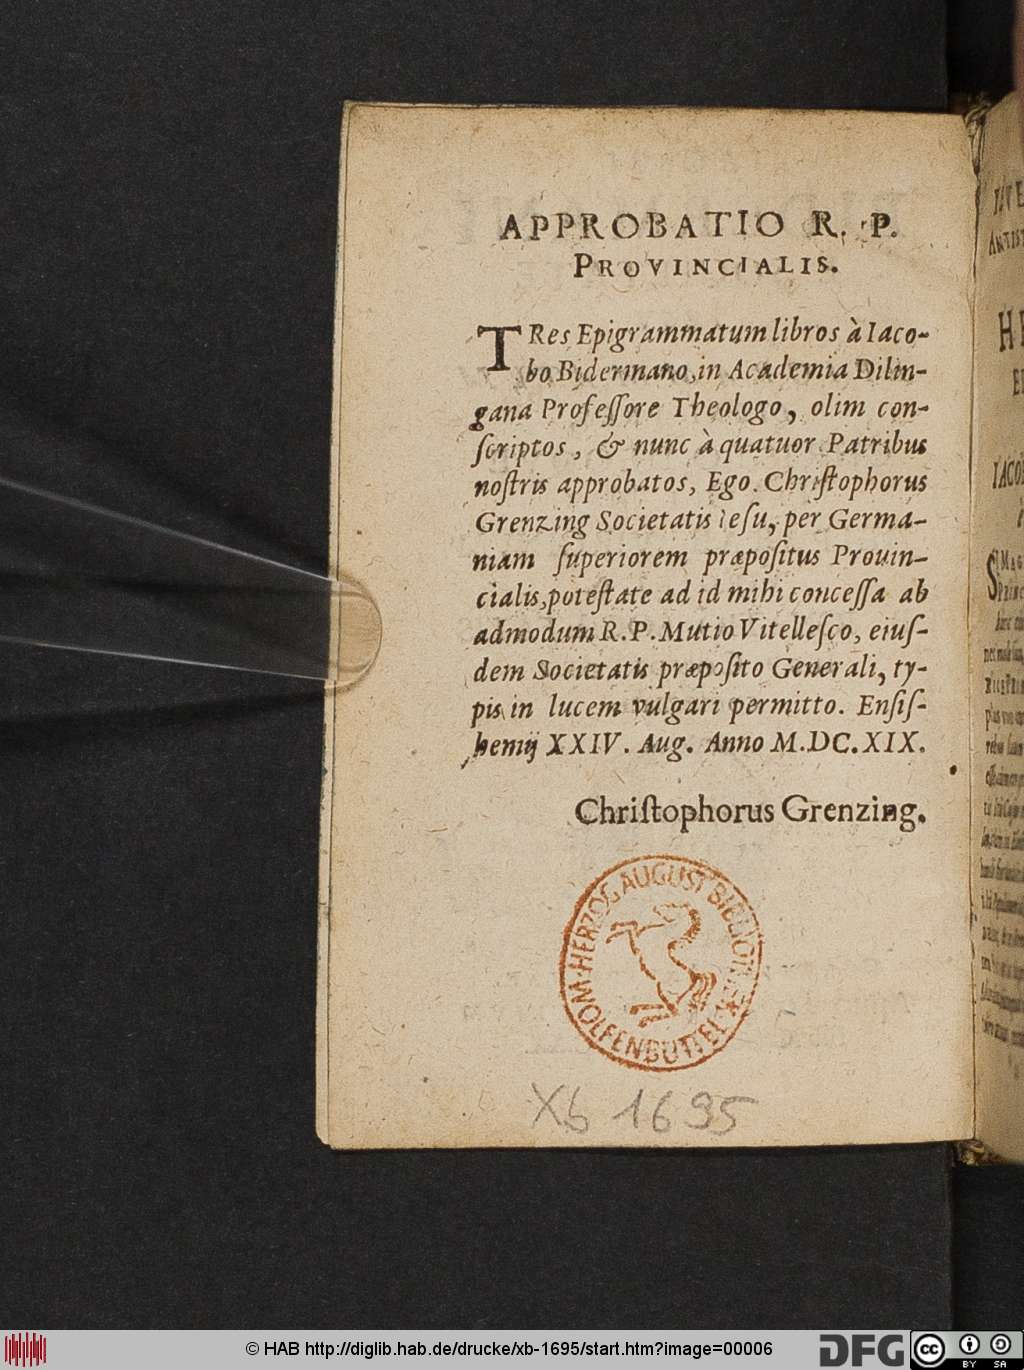 APPROBATIO R. P.
PROVINCIALIS.
TRes Epigrammatum libros à Iaco-
bo Bidermano, in Academia Dilin-
gana Profeſſore Theologo, olim con-
ſcriptos, & nunc à quatuor Patribus
noſtris approbatos, Ego. Chriſtophorus
Grenzing Societatis Ieſu, per Germa-
niam ſuperiorem præpoſitus Prouin-
cialis, poteſtate ad id mihi conceſſa ab
admodum R. P. Mutio Vitelleſco, eiuſ-
dem Societatis præpoſito Generali, ty-
pis in lucem vulgari permitto. Enſiſ-
hemij XXIV. Aug. Anno M.DC.XIX.
Chriſtophorus Grenzing.
HERZOG AUGUST BIBLIOTHEK
WOLFENBÜTTEL
Xb 1695
© HAB http://diglib.hab.de/drucke/xb-1695/start.htm?image=00006
DFG
cc BY SA